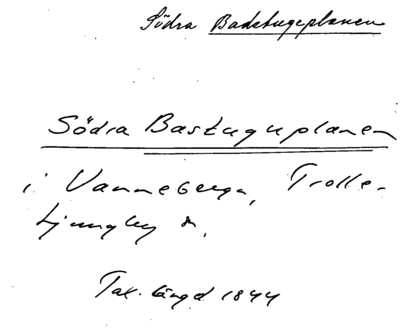 Södra Badstugeplanen
Södra Bastuguplanen
i Vanneberga, Trolle-
Ljungby sn.
Tax. längd 1844